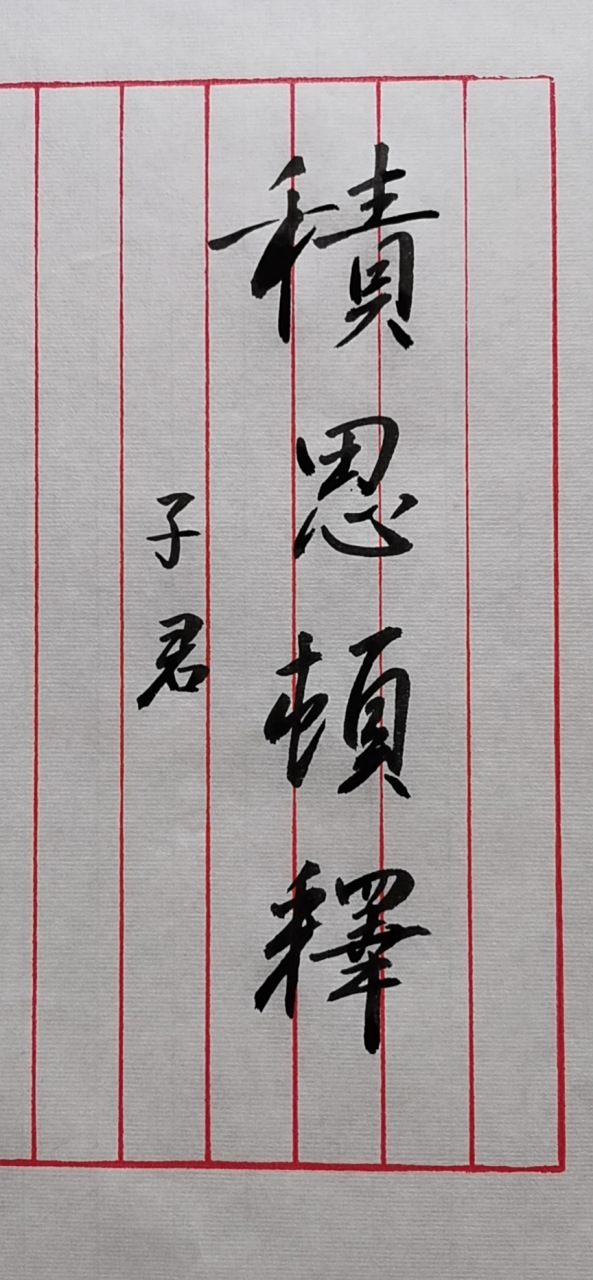 積思頓釋
子君